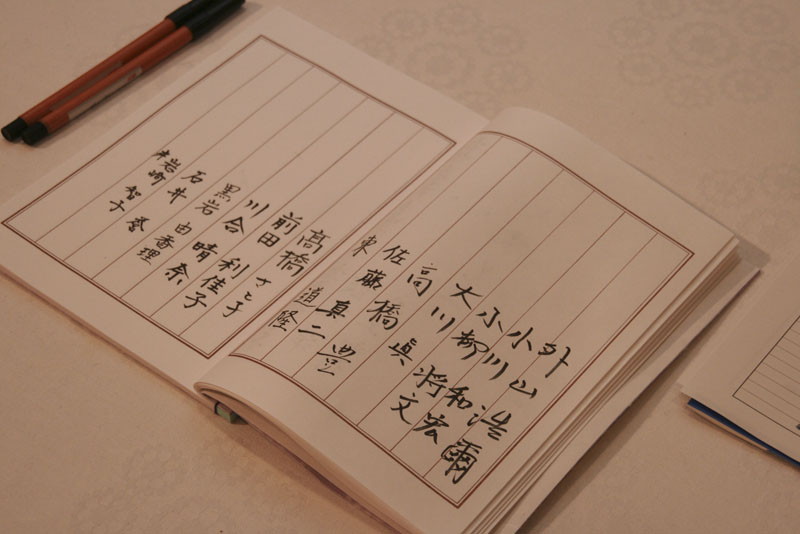 外山 浩爾
小川 和宏
小柳 将文
大川 眞
高橋 豊
佐藤 真二
東 道隆
髙橋 さと子
前田 利佳子
川合 晴奈
黒岩 由香理
石井
岩崎 智子